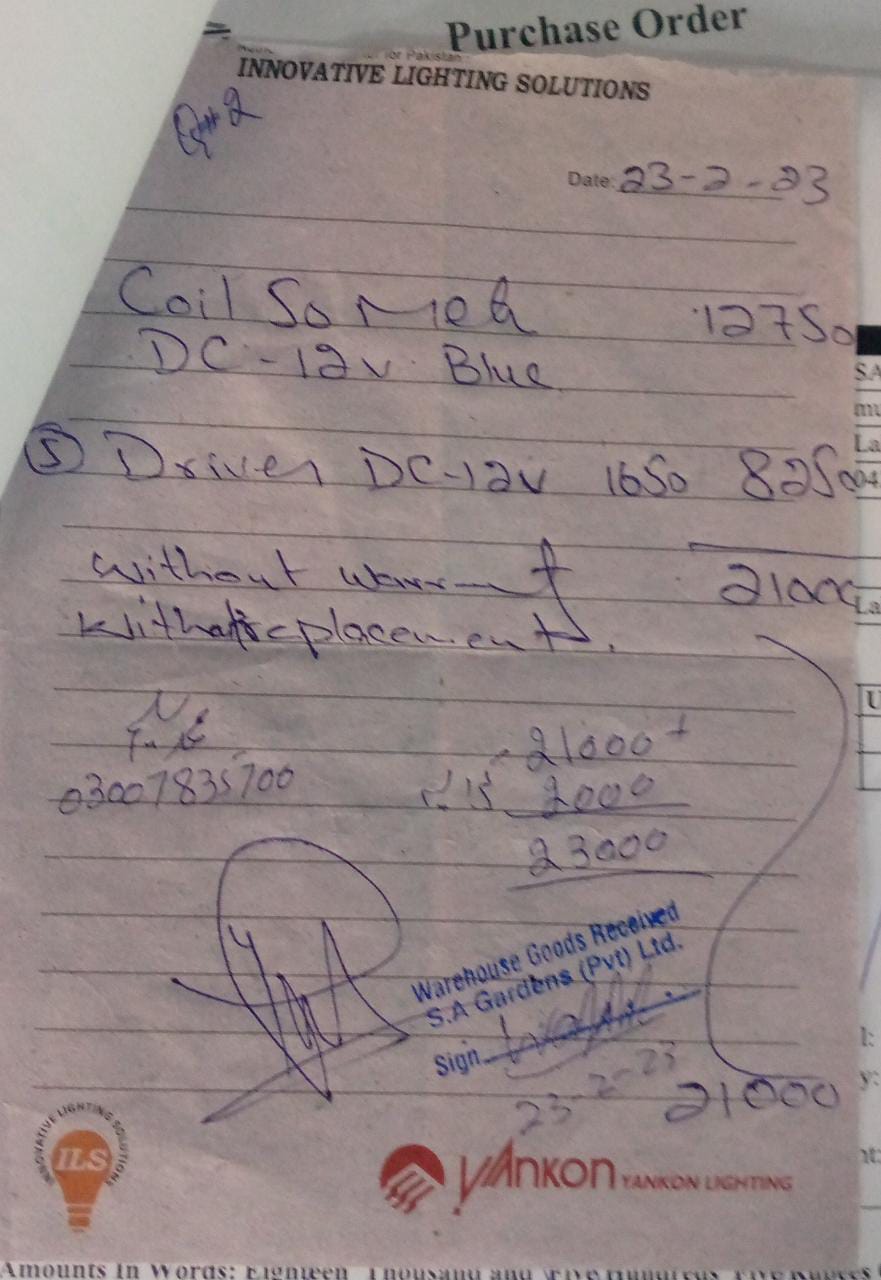 Purchase Order
for Pakistan
INNOVATIVE LIGHTING SOLUTIONS
Date: 23-2-23
Coil 50 Meter 12750
DC-12v Blue
5 Driver DC-12v 1650 8250
without warranty 21000
replacement.
21000+
03007835700 2000
23000
Warehouse Goods Received
S.A Gardens (Pvt) Ltd.
Sign
23-2-23
21000
INNOVATIVE LIGHTING SOLUTIONS
ILS
YANKON YANKON LIGHTING
SA
mu
La
04
La
U
l:
y:
nt:
Amounts In Words: Eighteen Thousand and Five Hundred Five Rupees